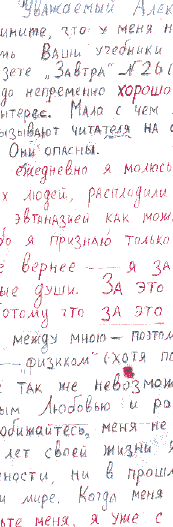 Уважаемый Алек
ините, что у меня н
ть Ваши учебники
зете „Завтра" №26(
до непременно хорошо
нтерес. Мала с чем
ызывают читателя на с
Они опасны.
ежедневно я молюсь
х людей, расплодили
эвтаназией как мож
бо я признаю только
е вернее — я за
ые души. За это
отому что за это
между мною — поэтом
„физиком" (хотя по
так же невозмож
ым Любовью и ра
обижайтесь, меня не
лет своей жизни я
ности, ни в прошл
и мире. Когда меня
ьте меня, я уже с